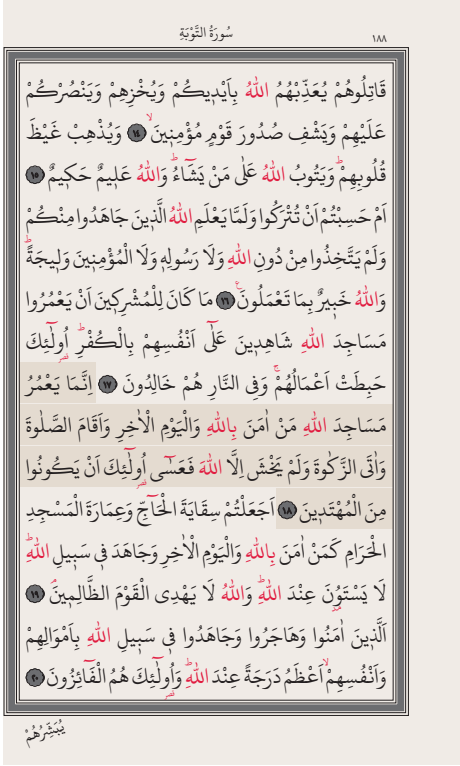 سُورَةُ التَّوْبَةِ ١٨٨
قَاتِلُوهُمْ يُعَذِّبْهُمُ اللّٰهُ بِاَيْدِيكُمْ وَيُخْزِهِمْ وَيَنْصُرْكُمْ
عَلَيْهِمْ وَيَشْفِ صُدُورَ قَوْمٍ مُؤْمِنِينَۙ ١٤ وَيُذْهِبْ غَيْظَ
قُلُوبِهِمْۜ وَيَتُوبُ اللّٰهُ عَلٰى مَنْ يَشَٓاءُۜ وَاللّٰهُ عَلِيمٌ حَكِيمٌ ١٥
اَمْ حَسِبْتُمْ اَنْ تُتْرَكُوا وَلَمَّا يَعْلَمِ اللّٰهُ الَّذِينَ جَاهَدُوا مِنْكُمْ
وَلَمْ يَتَّخِذُوا مِنْ دُونِ اللّٰهِ وَلَا رَسُولِهٖ وَلَا الْمُؤْمِنِينَ وَلِيجَةًۜ
وَاللّٰهُ خَبِيرٌ بِمَا تَعْمَلُونَ۟ ١٦ مَا كَانَ لِلْمُشْرِكِينَ اَنْ يَعْمُرُوا
مَسَاجِدَ اللّٰهِ شَاهِدِينَ عَلٰٓى اَنْفُسِهِمْ بِالْكُفْرِۜ اُو۬لٰٓئِكَ
حَبِطَتْ اَعْمَالُهُمْۚ وَفِي النَّارِ هُمْ خَالِدُونَ ١٧ اِنَّمَا يَعْمُرُ
مَسَاجِدَ اللّٰهِ مَنْ اٰمَنَ بِاللّٰهِ وَالْيَوْمِ الْاٰخِرِ وَاَقَامَ الصَّلٰوةَ
وَاٰتَى الزَّكٰوةَ وَلَمْ يَخْشَ اِلَّا اللّٰهَ فَعَسٰٓى اُو۬لٰٓئِكَ اَنْ يَكُونُوا
مِنَ الْمُهْتَدِينَ ١٨ اَجَعَلْتُمْ سِقَايَةَ الْحَٓاجِّ وَعِمَارَةَ الْمَسْجِدِ
الْحَرَامِ كَمَنْ اٰمَنَ بِاللّٰهِ وَالْيَوْمِ الْاٰخِرِ وَجَاهَدَ فِي سَبِيلِ اللّٰهِۜ
لَا يَسْتَوُ۫نَ عِنْدَ اللّٰهِۜ وَاللّٰهُ لَا يَهْدِي الْقَوْمَ الظَّالِمِينَۢ ١٩
اَلَّذِينَ اٰمَنُوا وَهَاجَرُوا وَجَاهَدُوا فِي سَبِيلِ اللّٰهِ بِاَمْوَالِهِمْ
وَاَنْفُسِهِمْۙ اَعْظَمُ دَرَجَةً عِنْدَ اللّٰهِۜ وَاُو۬لٰٓئِكَ هُمُ الْفَٓائِزُونَ ٢٠
يُبَشِّرُهُمْ